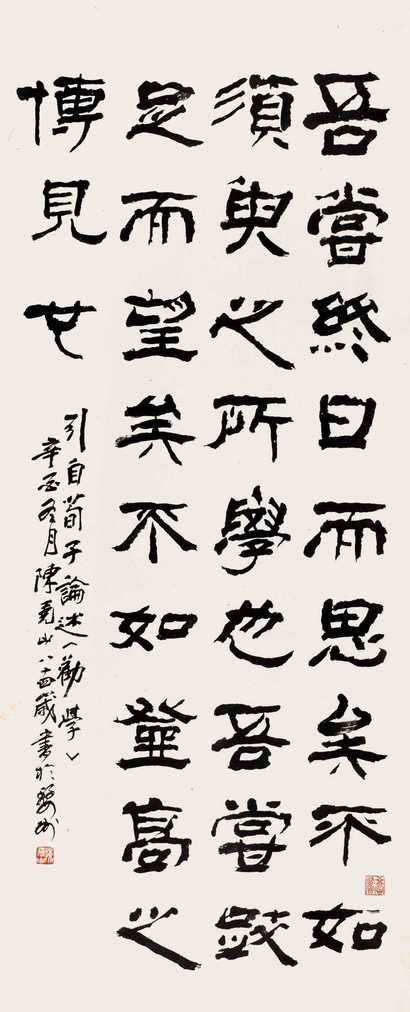 吾嘗終日而思矣不如
須臾之所學也吾嘗跂
足而望矣不如登高之
博見也
引自荀子論述〈勸學〉
辛冬月陳山八十四歲書於